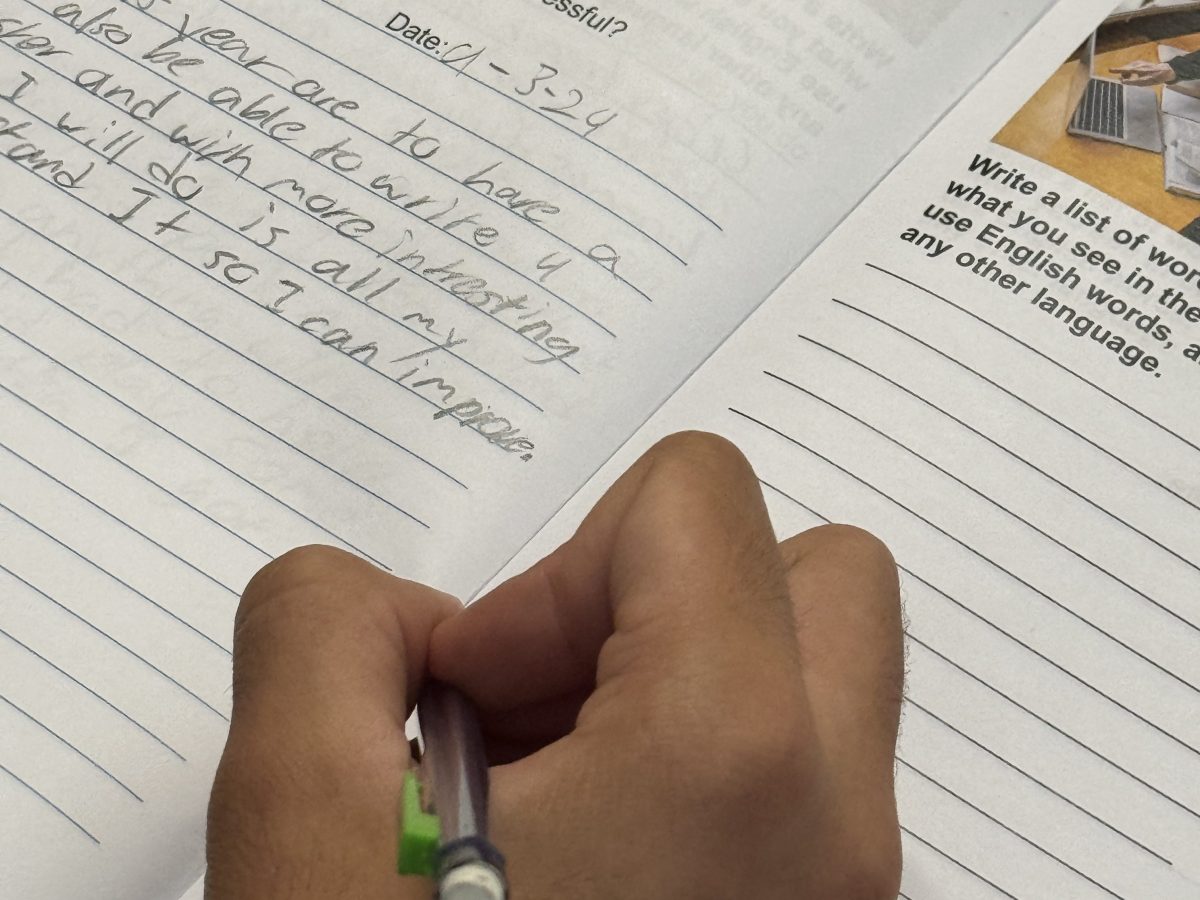 essful?
Date: 9-3-24
year are to have a
also be able to write
and with more intresting
I will do is all my
tand It so I can improve.
Write a list of wor
what you see in the
use English words, a
any other language.